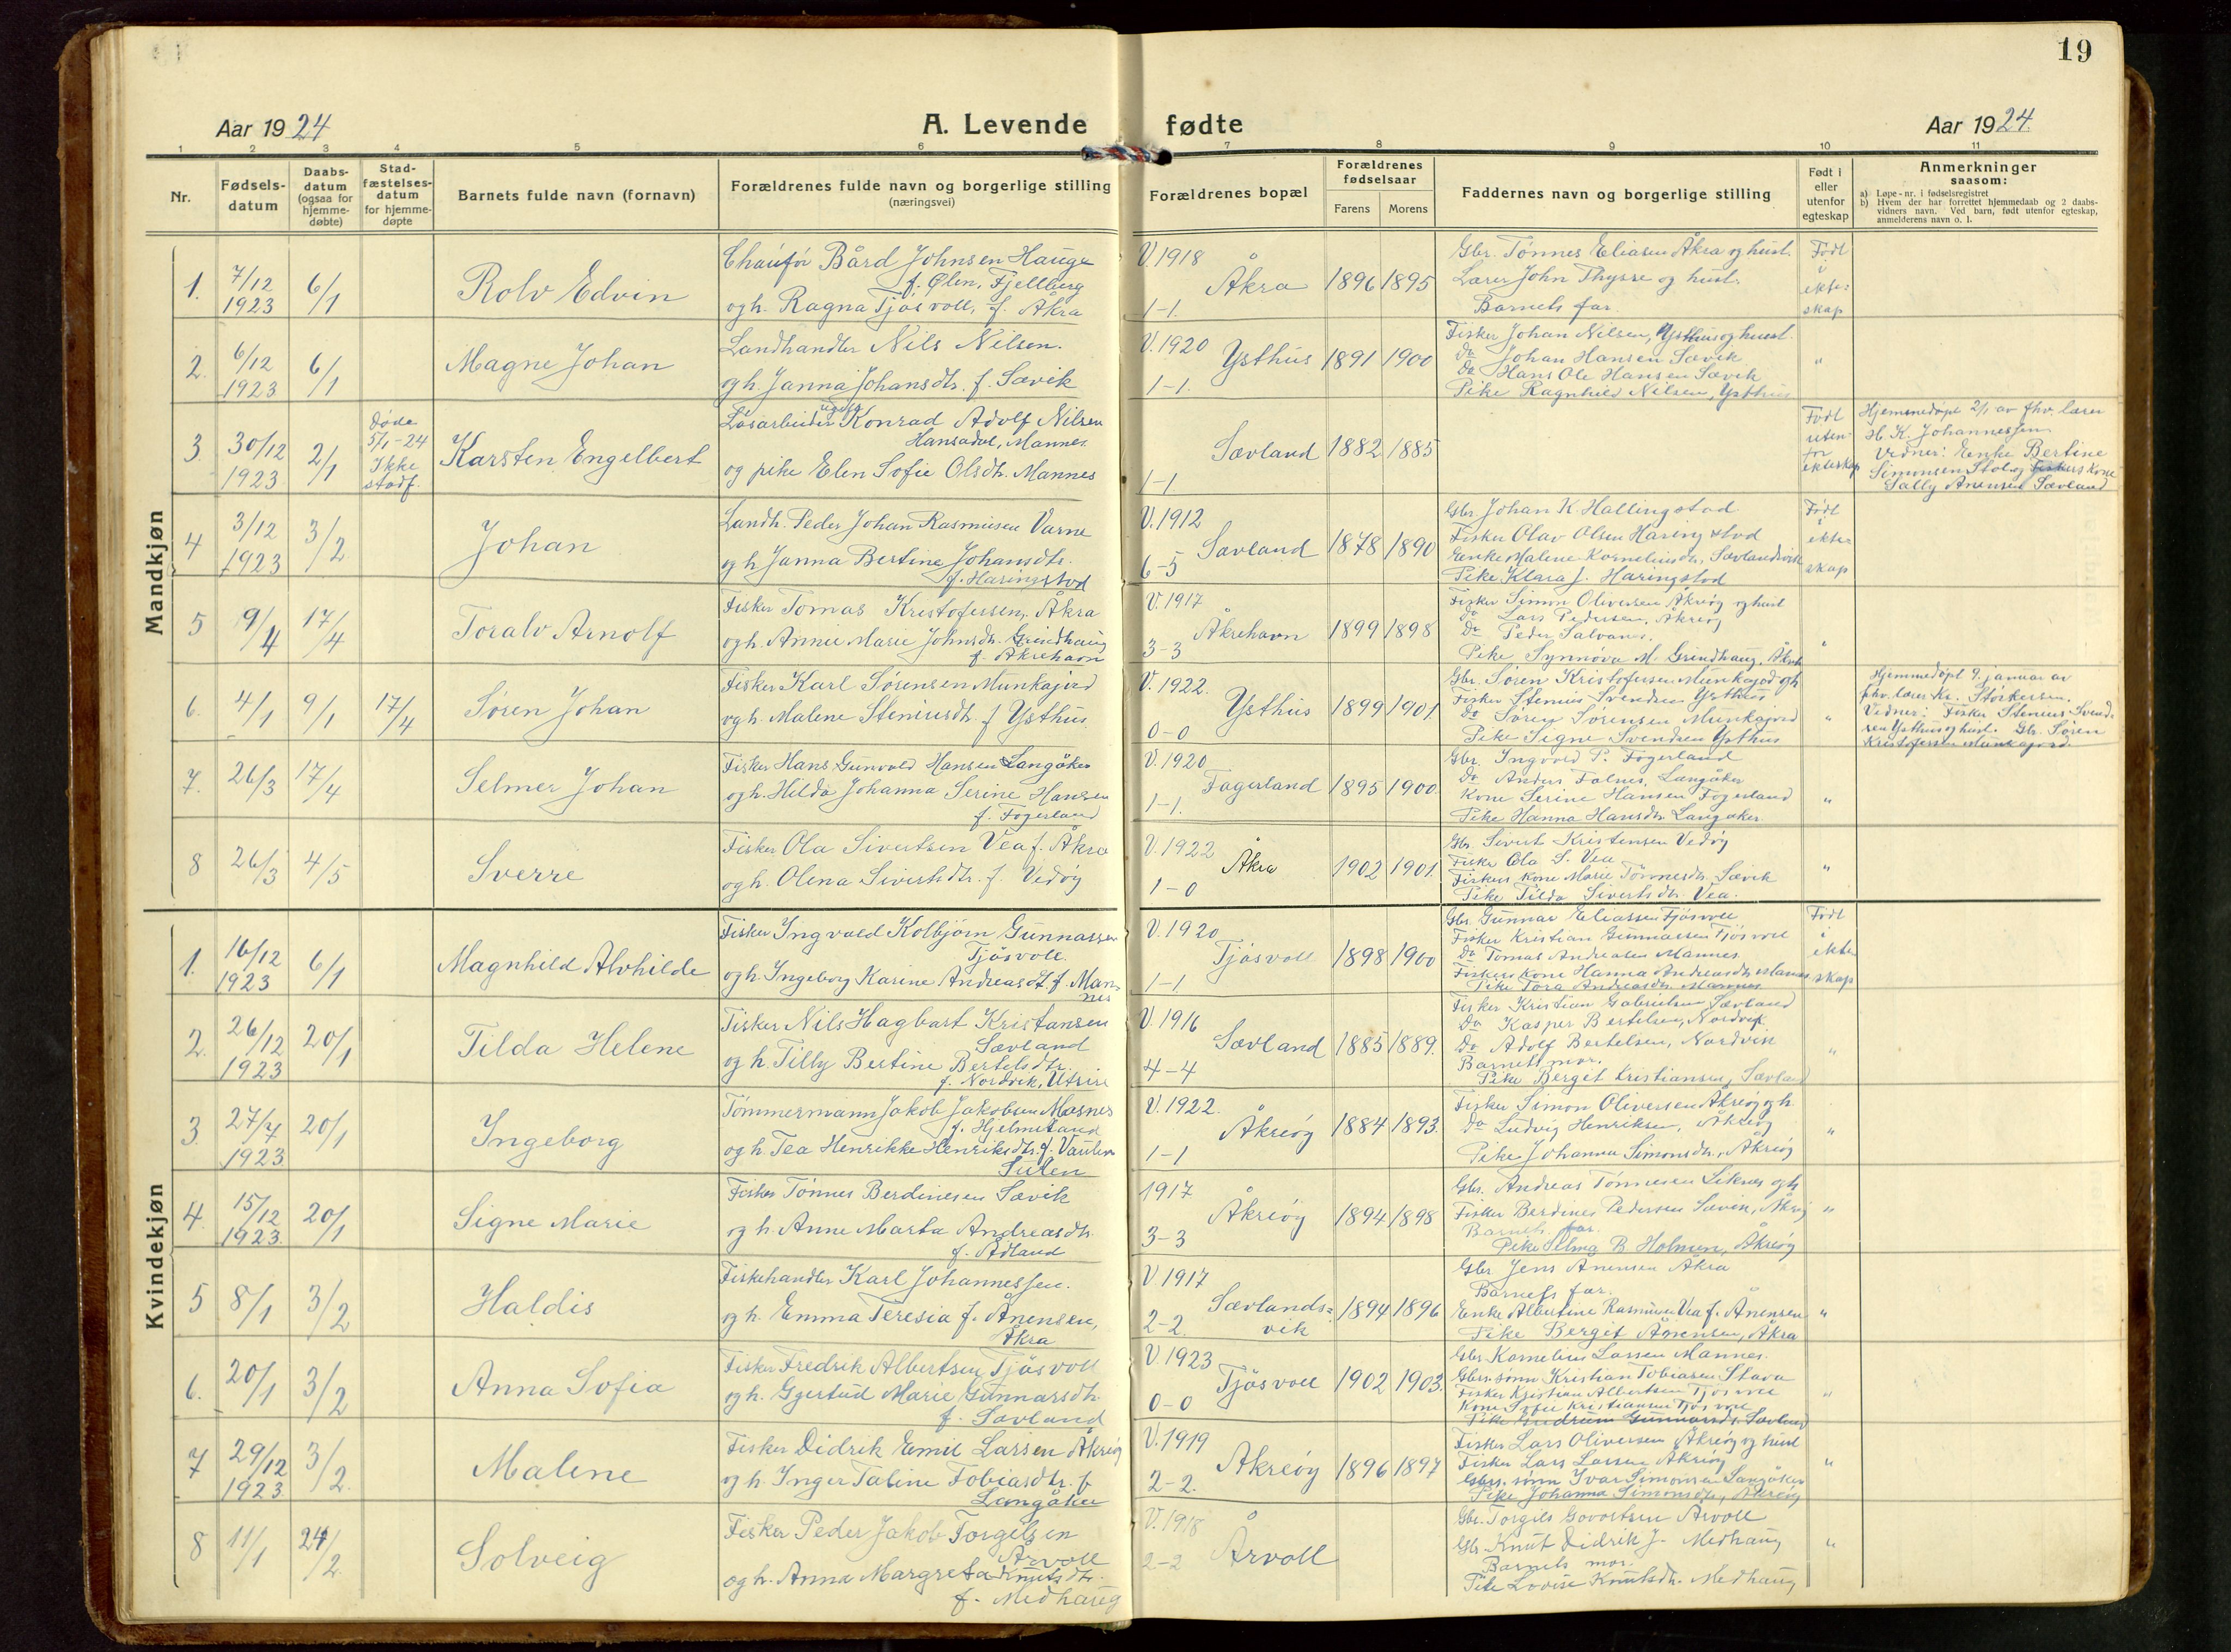 19
Aar 1924
A. Levende fødte
Aar 1924.
1 2 3 4 5 6 7 8 9 10 11
Nr.
Fødsels-
datum
Daabs-
datum
(ogsaa for
hjemme-
døbte)
Stad-
fæstelses-
datum
for hjemme-
døpte
Barnets fulde navn (fornavn)
Forældrenes fulde navn og borgerlige stilling
(næringsvei)
Forældrenes bopæl
Forældrenes
fødselsaar
Farens Morens
Faddernes navn og borgerlige stilling
Født i
eller
utenfor
egteskap
Anmerkninger
saasom:
a) Løpe-nr. i fødselsregistret
b) Hvem der har forrettet hjemmedaab og 2 daabs-
vidners navn. Ved barn, født utenfor egteskap,
anmelderens navn o. l.
Mandkjøn
1. 7/12 1923 6/1 Rolv Edvin
Chaufør Bård Johnsen Hauge
f. Ølen, Fjellberg
og h. Ragna Tjøsvoll, f. Åkra
V. 1918
Åkra 1896 1895
1-1.
Gbr. Tønnes Eliasen Åkra og hust.
Lærer John Thysse og hust.
Barnets far.
Født
i
ekte-
skap
2. 6/12 1923 6/1 Magne Johan
Landhandler Nils Nilsen.
og h. Janna Johansdtr. f. Sævik
V. 1920
Ysthus 1891 1900
1-1.
Fisker Johan Nilsen, Ysthus og hust.
Do Johan Hansen Sævik
Do Hans Ole Hansen Sævik
Pike Ragnhild Nilsen, Ysthus
"
3. 30/12 1923 2/1
Døde
5/1-24
Ikke
stadf.
Karsten Engelbert
Løsarbeider ugift Konrad Adolf Nilsen
Hansadal, Mannes
og pike Elen Sofie Olsdtr. Mannes
Sævland 1882 1885
1-1
Født
uten-
for
ekteskap
Hjemmedøpt 2/1 av fhv. lærer
H. K. Johannessen.
Vidner: Enke Bertine
Simonsen Stol og Fiskers kone
Sally Anensen Sævland
4 3/12 1923 3/2 Johan
Landh. Peder Johan Rasmusen Varne
og h. Janna Bertine Johansdtr.
f. Haringstad
V. 1912
Sævland 1878 1890
6-5
Gbr Johan K. Hallingstad
Fisker Olav Olsen Haringstad
Enke Malene Korneliusdtr. Sævlandsvik
Pike Klara J. Haringstad
Født
i
ekte-
skap
5 9/4 17/4 Toralv Arnolf
Fisker Tomas Kristofersen, Åkra
og h. Annie Marie Johnsdtr. Grindhaug
f. Åkrehavn
V. 1917
Åkrehavn 1899 1898
3-3
Fisker Simon Oliversen Åkreøy og hust
Do Lars Pedersen, Åkreøy
Do Peder Salvaner.
Pike Synnøva M. Grindhaug.
"
6. 4/1 9/1 17/4 Søren Johan
Fisker Karl Sørensen Munkajord
og h. Malene Steniusdtr. f Ysthus.
V. 1922.
Ysthus 1899 1901.
0-0
Gbr. Søren Kristofersen Munkajord og h
Fisker Stenius Svendsen Ysthus
Do Søren Sørensen Munkajord
Pike Signe Svendsen Ysthus
"
Hjemmedøpt 9. januar av
fhv. lærer Kr. Storkersen.
Vidner: Fisker Stenius Svend-
sen Ysthus og hust. Gbr. Søren
Kristofersen Munkajord.
7. 26/3 17/4 Selmer Johan
Fisker Hans Gunvald Hansen Langåker
og h. Hilda Johanna Serine Hansen
f. Fagerland
V. 1920
Fagerland 1895 1900.
1-1.
Gbr. Ingvald P. Fagerland
Do Anders Falnes, Langåker
Kone Serine Hansen Fagerland
Pike Hanna Hansdtr. Langåker
"
8 26/3 4/5 Sverre
Fisker Ola Sivertsen Vea f. Åkra
og h. Olena Sivertsdtr. f Vedøy
V. 1922
Åkra 1902 1901.
1-0
Gbr. Sivert Kristensen Vedøy
Fisker Ola S. Vea
Fiskers kone Marie Tønnesdtr. Sævik
Pike Tilda Sivertsdtr. Vea.
"
Kvindekjøn
1. 16/12 1923 6/1 Magnhild Alvhilde
Fisker Ingvald Kolbjørn Gunnarsen
Tjøsvoll.
og h. Ingeborg Karine Andreasdt. f. Man-
nes
V. 1920
Tjøsvoll 1898 1900
1-1.
Gbr. Gunnar Eliassen Tjøsvoll
Fisker Kristian Gunnarsen Tjøsvoll
Do Tomas Andreasen Mannes
Fiskers kone Hanna Andreasdtr. Mannes
Pike Tora Andreasdtr. Mannes
Født
i
ekte
skap
2. 26/12 1923 20/1 Tilda Helene
Fisker Nils Hagbart Kristansen
Sævland
og h. Tilly Bertine Bertelsdtr.
f. Nordvik, Utsire
V. 1916
Sævland 1885 1889.
4-4
Fisker Kristian Gabrielsen Sævland
Do Kasper Bertelsen, Nordvik
Do Adolf Bertelsen, Nordvik
Barnets mor.
Pike Bergit Kristiansen, Sævland
"
3. 27/7 1923 20/1 Ingeborg
Tømmermann Jakob Jakobsen Mosnes
f. Hjelmeland
og h. Tea Henrikke Henriksdtr. f.
Sulen
V. 1922.
Åkreøy 1884 1893.
1-1
Fisker Simon Oliversen Åkreøy og h.
Do Ludvig Henriksen, Åkreøy
Pike Johanna Simonsdtr., Åkreøy
"
4. 15/12 1923. 20/1 Signe Marie
Fisker Tønnes Berdinesen Sævik
og h. Anne Marta Andreasdtr.
f. Ådland
1917
Åkreøy 1894 1898
3-3
Gbr. Andreas Tønnesen Liknes og h
Fisker Berdines Pedersen Sævik, Åkrøy
Barnets far.
Pike Selma B. Holmen, Åkreøy
"
5 8/1 3/2 Haldis
Fiskehandler Karl Johannessen.
og h. Emma Teresia f. Anensen,
Åkra
V 1917
Sævlands-
vik 1894 1896
2-2.
Gbr Jens Anensen Åkra
Barnets far.
Enke Albertine Rasmusen Vea f. Ånensen
Pike Bergit Ånensen, Åkra
"
6. 20/1 3/2 Anna Sofia
Fisker Fredrik Albertsen Tjøsvoll
og h. Gjertud Marie Gunnarsdtr.
f. Sævland
V. 1923
Tjøsvoll 1902 1903.
0-0
Gbr Kornelius Larsen Mannes.
Gbrs. sønn Kristian Tobiasen Stava
Fisker Kristian Albertsen Tjøsvoll
Kone Sofie Kristiansen Tjøsvoll
Pike Gudrun Gunnarsdtr. Sævland
"
7 29/12 1923. 3/2. Malene
Fisker Didrik Emil Larsen Åkreøy
og h. Inger Taline Tobiasdtr. f
Langåker
V. 1919
Åkreøy 1896 1897
2-2.
Fisker Lars Oliversen Åkreøy og hust
Fisker Lars Larsen Åkreøy
Gbrs. sønn Ivar Simonsen Langåker
Pike Johanna Simonsdtr, Åkreøy
"
8 11/1 24/2. Solveig
Fisker Peder Jakob Torgilsen
Årvoll
og h. Anna Margreta Knutsdtr.
f. Medhaug
V. 1918
Årvoll
2-2
Gbr. Torgils Govertsen Årvoll
Gbr. Knut Didrik J. Medhaug
Barnets mor.
Pike Lovise Knutsdtr. Medhaug
"